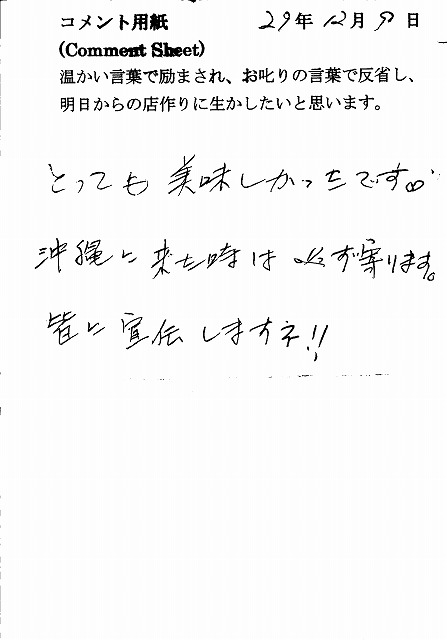 コメント用紙 29年12月9日
(Comment Sheet)
温かい言葉で励まされ、お叱りの言葉で反省し、
明日からの店作りに生かしたいと思います。
とっても美味しかったです。
沖縄に来た時は必ず寄ります。
皆に宣伝しますネ!!